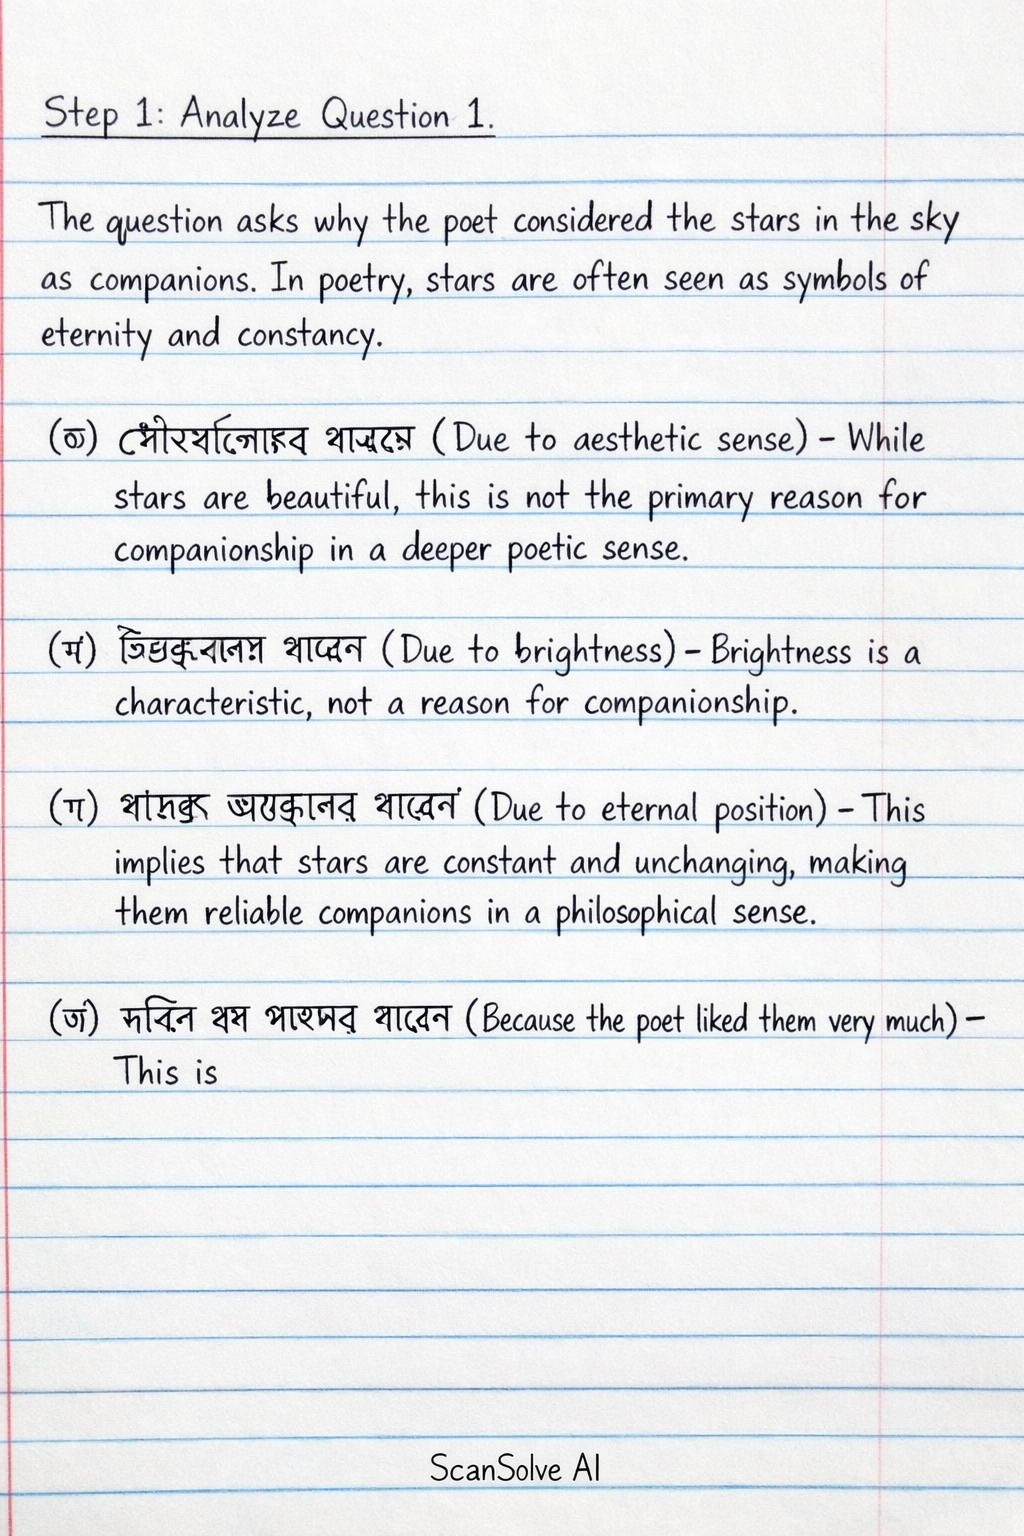 Step 1: Analyze Question 1.
The question asks why the poet considered the stars in the sky
as companions. In poetry, stars are often seen as symbols of
eternity and constancy.
(Due to aesthetic sense) – While
stars are beautiful, this is not the primary reason for
companionship in a deeper poetic sense.
(Due to brightness) – Brightness is a
characteristic, not a reason for companionship.
(Due to eternal position) – This
implies that stars are constant and unchanging, making
them reliable companions in a philosophical sense.
(Because the poet liked them very much) –
This is
ScanSolve AI